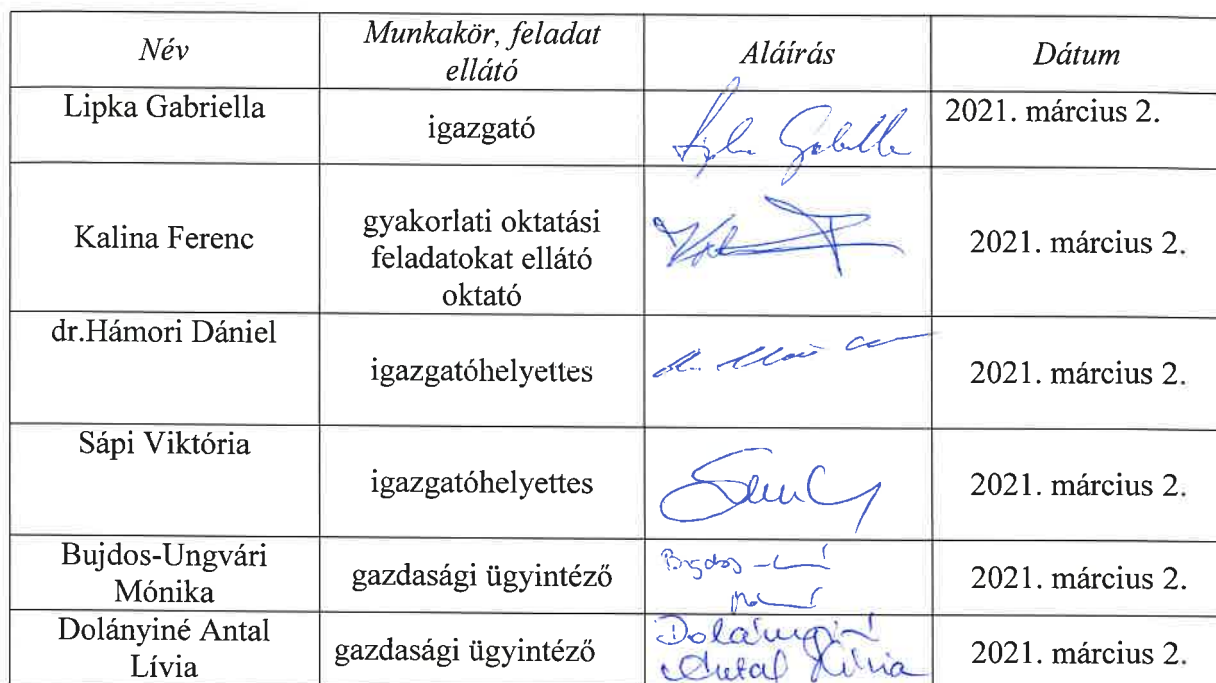 Név Munkakör, feladat ellátó Aláírás Dátum
Lipka Gabriella igazgató Lipka Gabriella 2021. március 2.
Kalina Ferenc gyakorlati oktatási feladatokat ellátó oktató 2021. március 2.
dr.Hámori Dániel igazgatóhelyettes 2021. március 2.
Sápi Viktória igazgatóhelyettes 2021. március 2.
Bujdos-Ungvári Mónika gazdasági ügyintéző 2021. március 2.
Dolányiné Antal Lívia gazdasági ügyintéző Dolányiné Antal Lívia 2021. március 2.